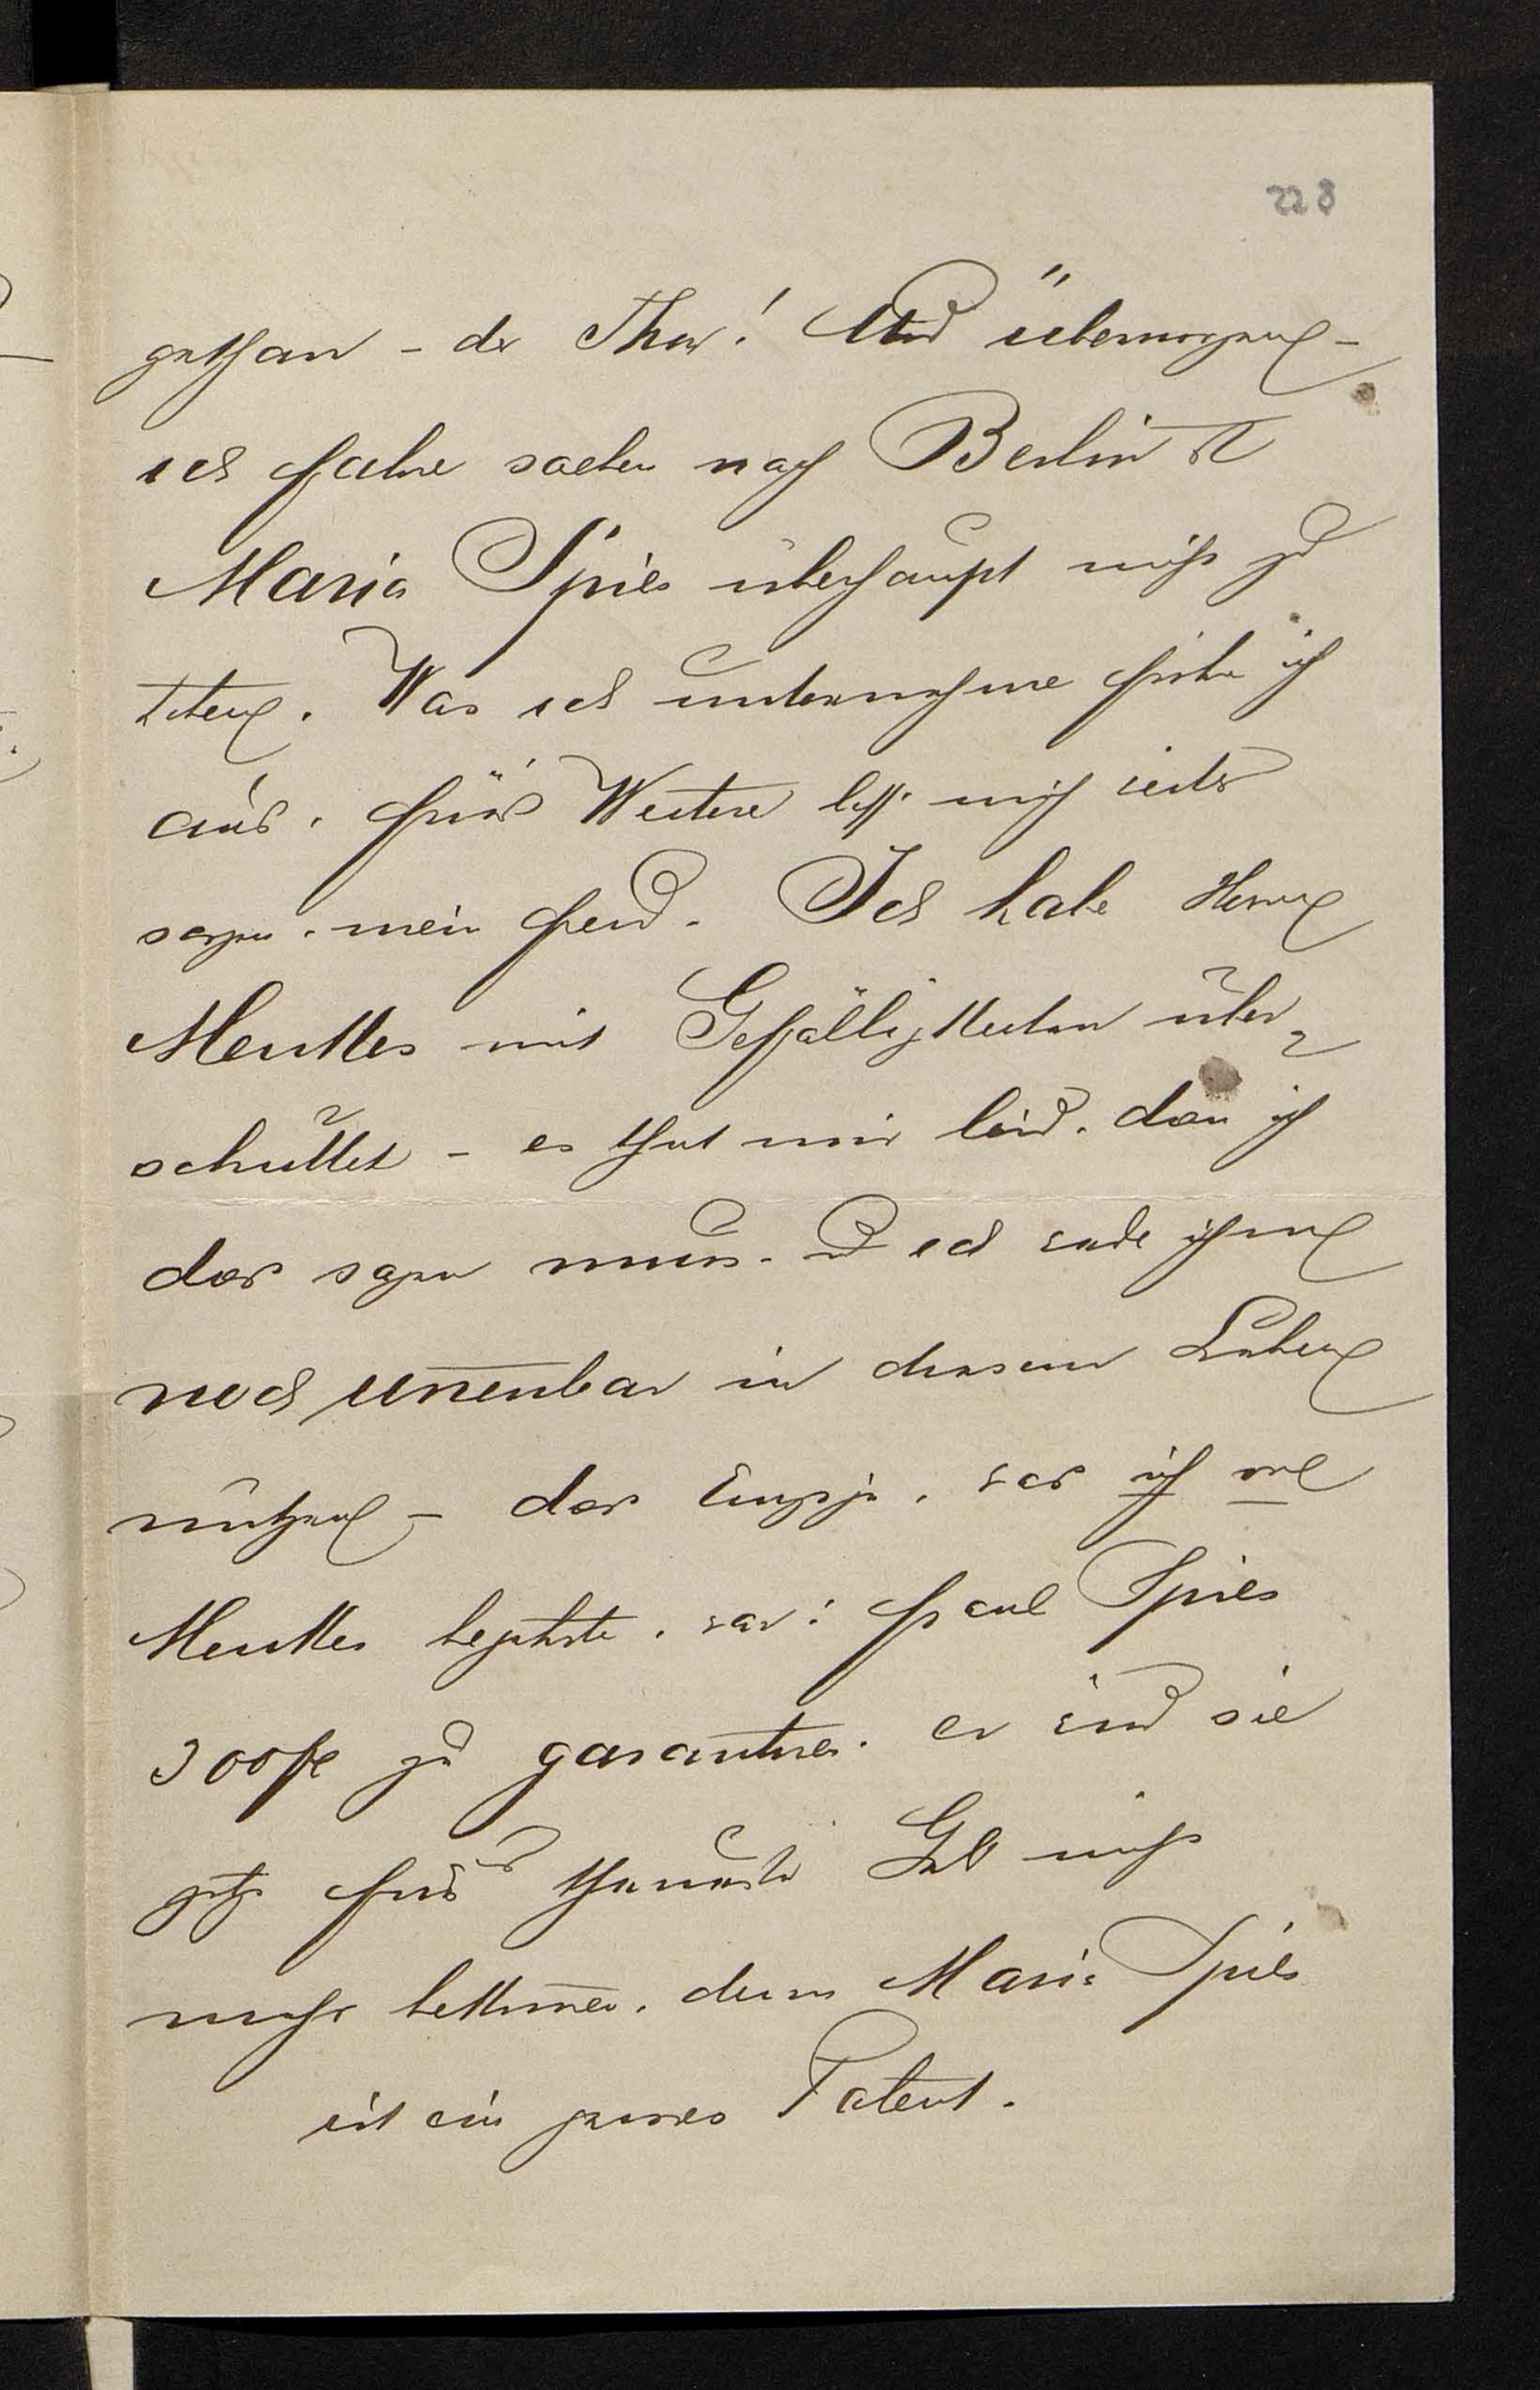 228
gethan – der Thor! Und übermorgen –
ich fahre soeben nach Berlin
Maria Spies überhaupt nicht zu
Was ich unternehme führe ich
aus. fürs Weitere laß mich
sorgen. mein Freund. Ich habe Herrn
Menkes mit Gefälligkeiten über-
schüttet – es thut mir leid. dass ich
das sagen muss. und ich werde ihm
noch unnennbar in diesem Leben
nützen – das Einzige. was ich von
Menkes begehrte. war: Fräul Spies
300 fl zu garantiren. er wird sie
jetzt fürs theuerste Geld nicht
mehr bekommen. denn Maria Spies
ist ein grosses Talent.